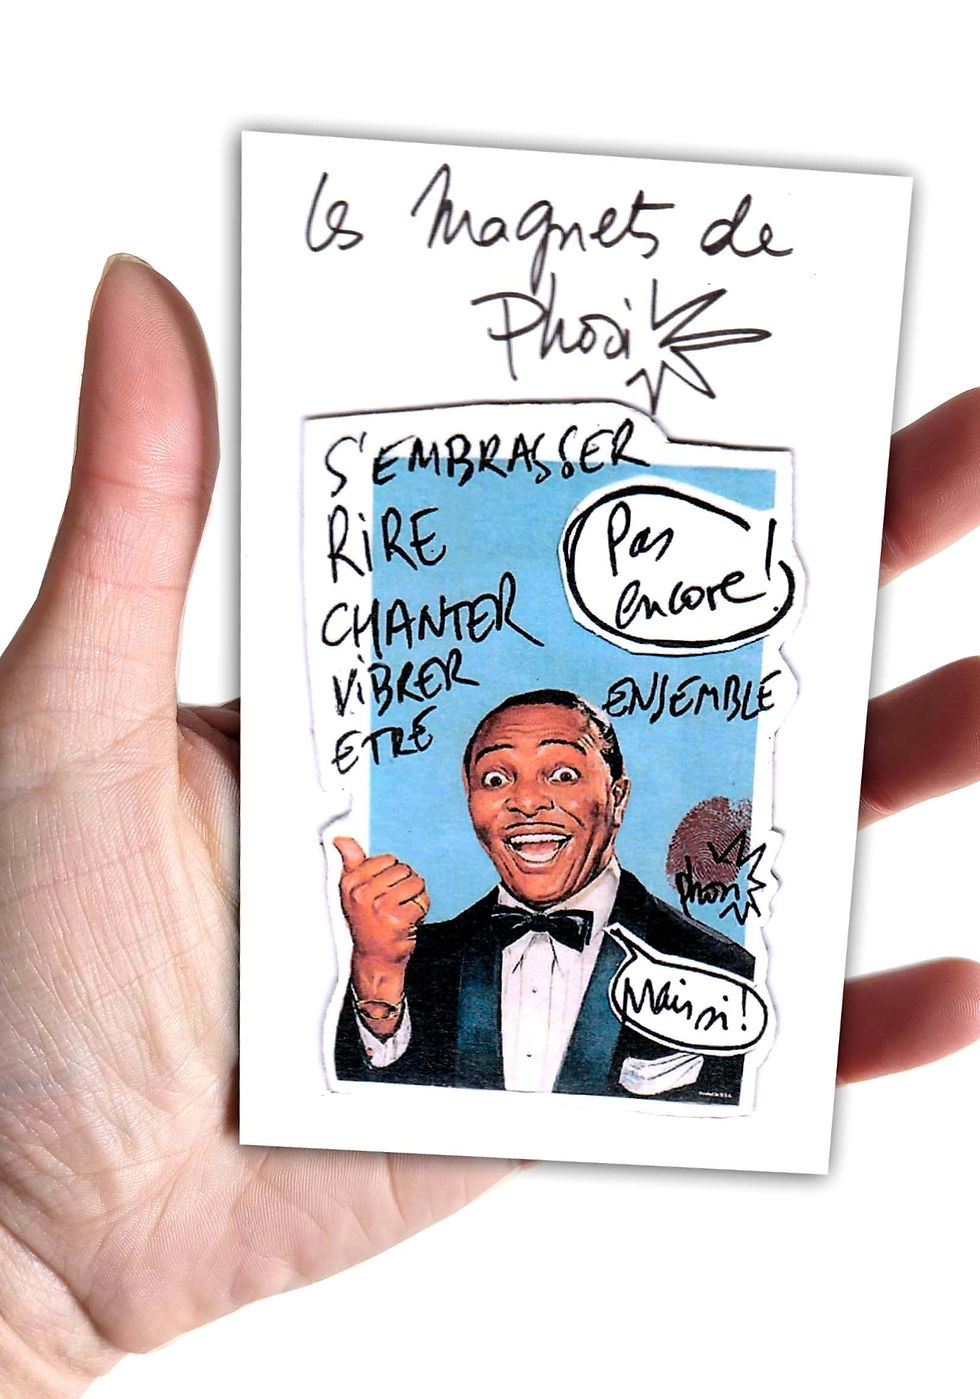 les Magnets de
Phosi
S'EMBRASSER
RiRE
CHANTER
ViBRER
ETRE
Pas
encore!
ENSEMBLE
phosi
Mais si!